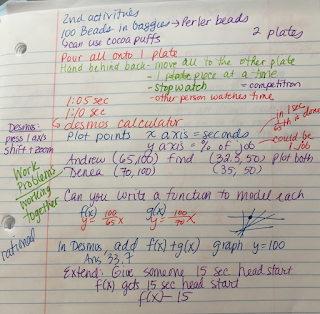 2nd activities
100 Beads in baggies → Perler beads
2 plates
→ can use cocoa puffs
Pour all onto 1 plate
Hand behind back - move all to the other plate
- 1 place at a time
- stopwatch = competition
- other person watches time
1:05 sec
1:10 sec
desmos calculator
Desmos:
press 1 axis
shift + zoom
Plot points x axis = seconds
y axis = % of job
in 1 sec
is done
could be
1 job
Andrew (65,100) find (32.5, 50) plot both
Denea (70,100) (35, 50)
Work
Problems
working
together
Can you write a function to model each
f(x) g(x)
y = 100/65 x y = 100/70 x
rational
In Desmos add f(x)+g(x) graph y=100
Ans 33.7
Extend: Give someone 15 sec head start
f(x) gets 15 sec head start
f(x) - 15